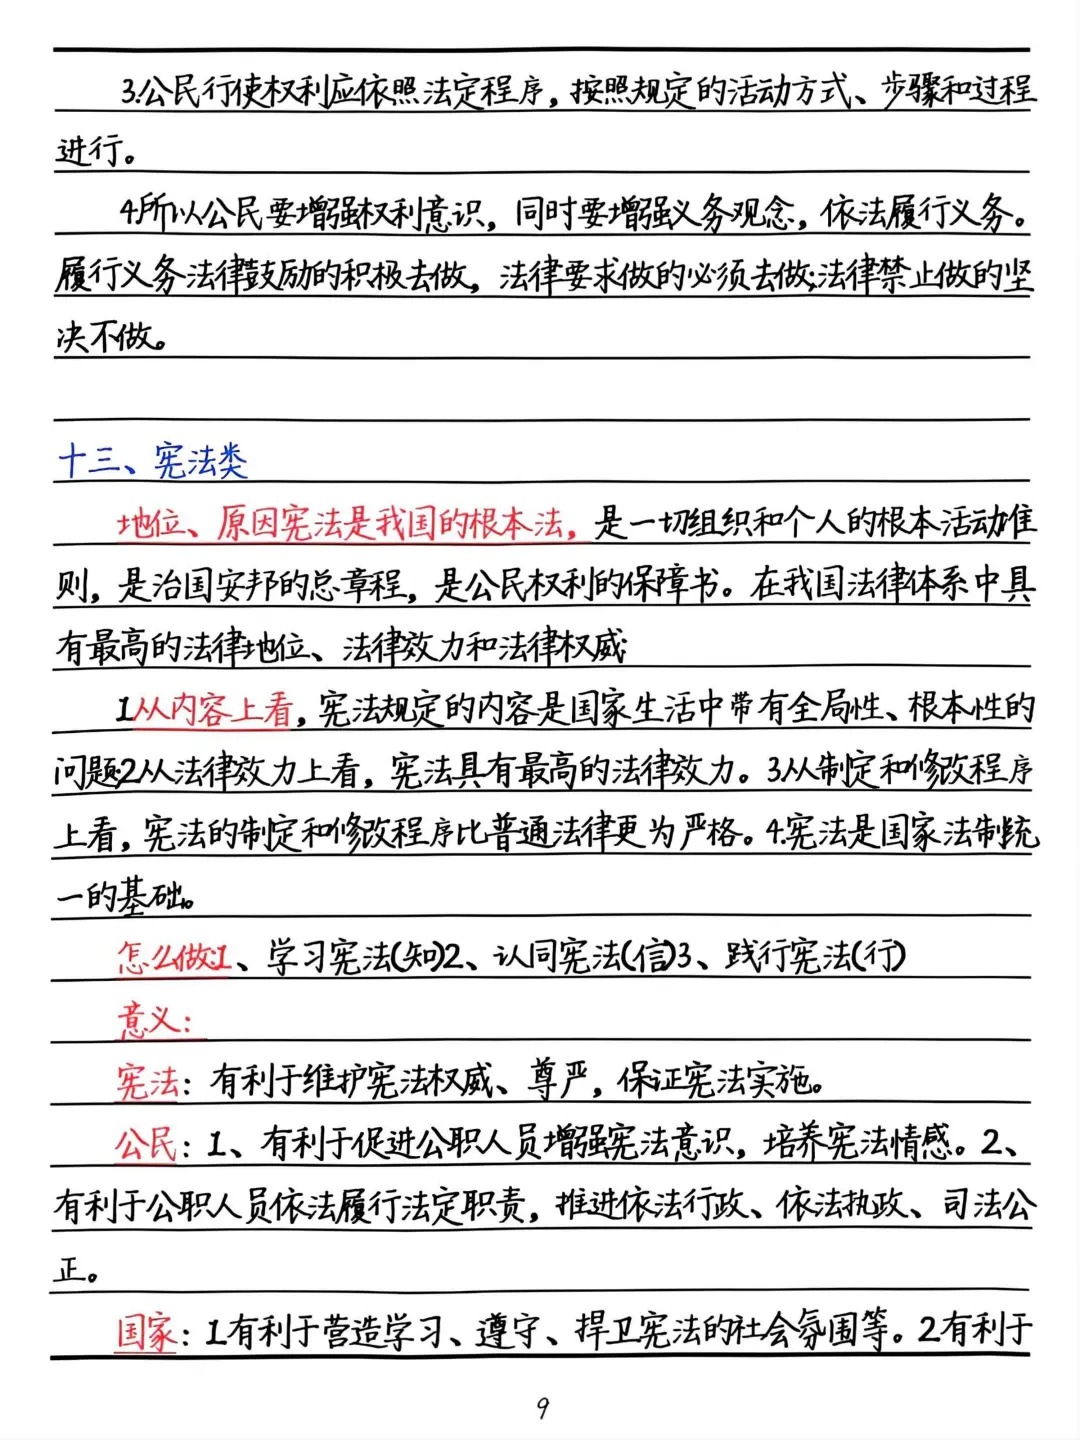 3.公民行使权利应依照法定程序，按照规定的活动方式、步骤和过程
进行。
4.所以公民要增强权利意识，同时要增强义务观念，依法履行义务。
履行义务法律鼓励的积极去做，法律要求做的必须去做;法律禁止做的坚
决不做。
十三、宪法类
地位、原因宪法是我国的根本法，是一切组织和个人的根本活动准
则，是治国安邦的总章程，是公民权利的保障书。在我国法律体系中具
有最高的法律地位、法律效力和法律权威;
1.从内容上看，宪法规定的内容是国家生活中带有全局性、根本性的
问题;2.从法律效力上看，宪法具有最高的法律效力。3.从制定和修改程序
上看，宪法的制定和修改程序比普通法律更为严格。4.宪法是国家法制统
一的基础。
怎么做:1、学习宪法(知)2、认同宪法(信)3、践行宪法(行)
意义：
宪法：有利于维护宪法权威、尊严，保证宪法实施。
公民：1、有利于促进公职人员增强宪法意识，培养宪法情感。2、
有利于公职人员依法履行法定职责，推进依法行政、依法执政、司法公
正。
国家：1.有利于营造学习、遵守、捍卫宪法的社会氛围等。2.有利于
9